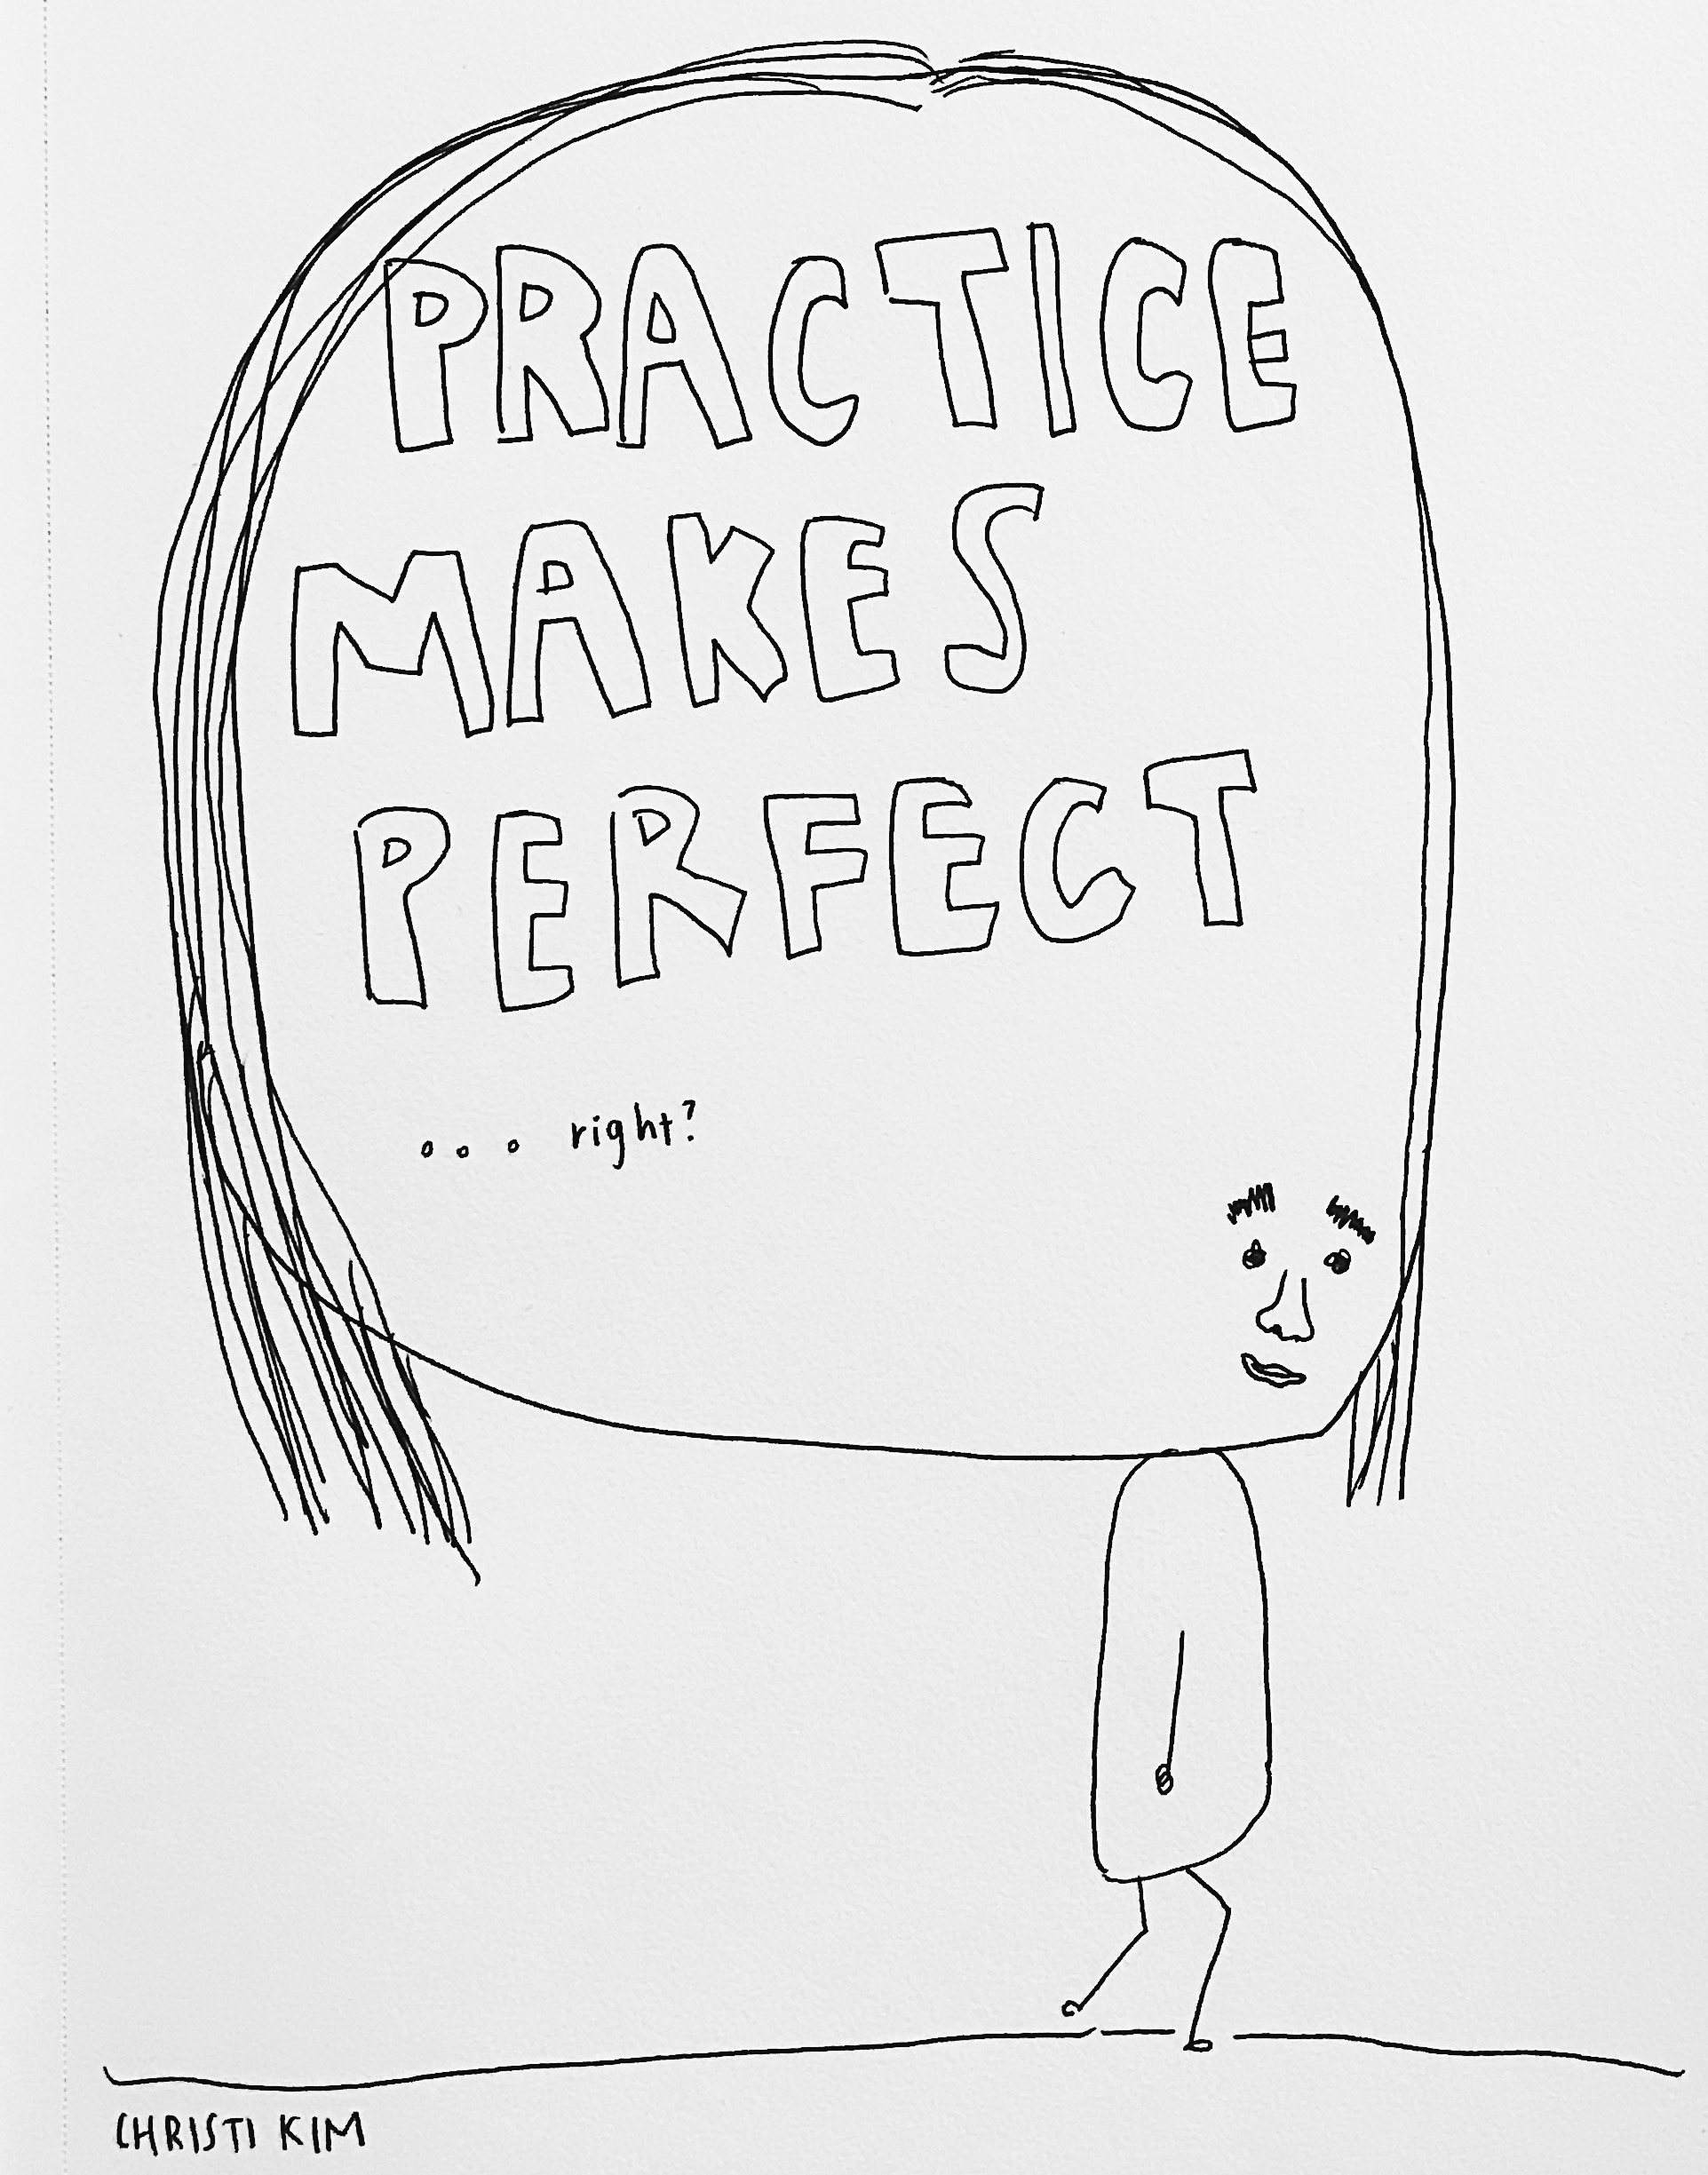 PRACTICE
MAKES
PERFECT
... right?
CHRISTI KIM